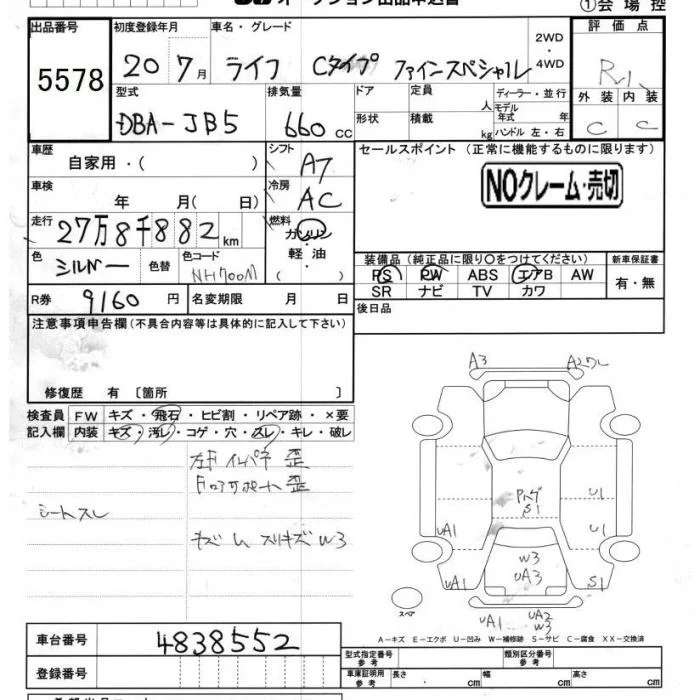 オークション出品申込書 ①会場控
出品番号 初度登録年月 車名・グレード 2WD・4WD 評価点
5578 20 7月 ライフ Cタイプ ファインスペシャル R1
型式 排気量 ドア 定員 人 ディーラー・並行 外装 内装
DBA-JB5 660cc 形状 積載 kg モデル年式 年 ハンドル 左・右 C C
車歴 シフト セールスポイント (正常に機能するものに限ります)
自家用・( ) AT
NOクレーム・売切
車検 年 月( 日) 冷房 AC
走行 27万8千882km 燃料 ガソリン・軽油 ( )
装備品 (純正品に限り○をつけてください) 新車保証書
PS PW ABS エアB AW 有・無
SR ナビ TV カワ
色 シルバー 色替 色コード NH700M
R券 9160円 名変期限 月 日 後日品
注意事項申告欄(不具合内容等は具体的に記入して下さい)
修復歴 有 〔箇所 〕
検査員 FW キズ・飛石・ヒビ割・リペア跡・×要
記入欄 内装 キズ・汚レ・コゲ・穴・スレ・キレ・破レ
左F インパネ 歪
Fロアサポート歪
シートスレ
キズ ム スリキズ W3
A3 A2ワレ
S1 U1
UA1 U1
W3
UA1 UA3 S1
スペア
UA1 UA2
W3
A-キズ E-エクボ U-凹み W-補修跡 S-サビ C-腐食 XX-交換済
車台番号 4838552
型式指定番号 参考 類別区分番号 参考
登録番号 車庫証明用 参考 長さ cm 幅 cm 高さ cm